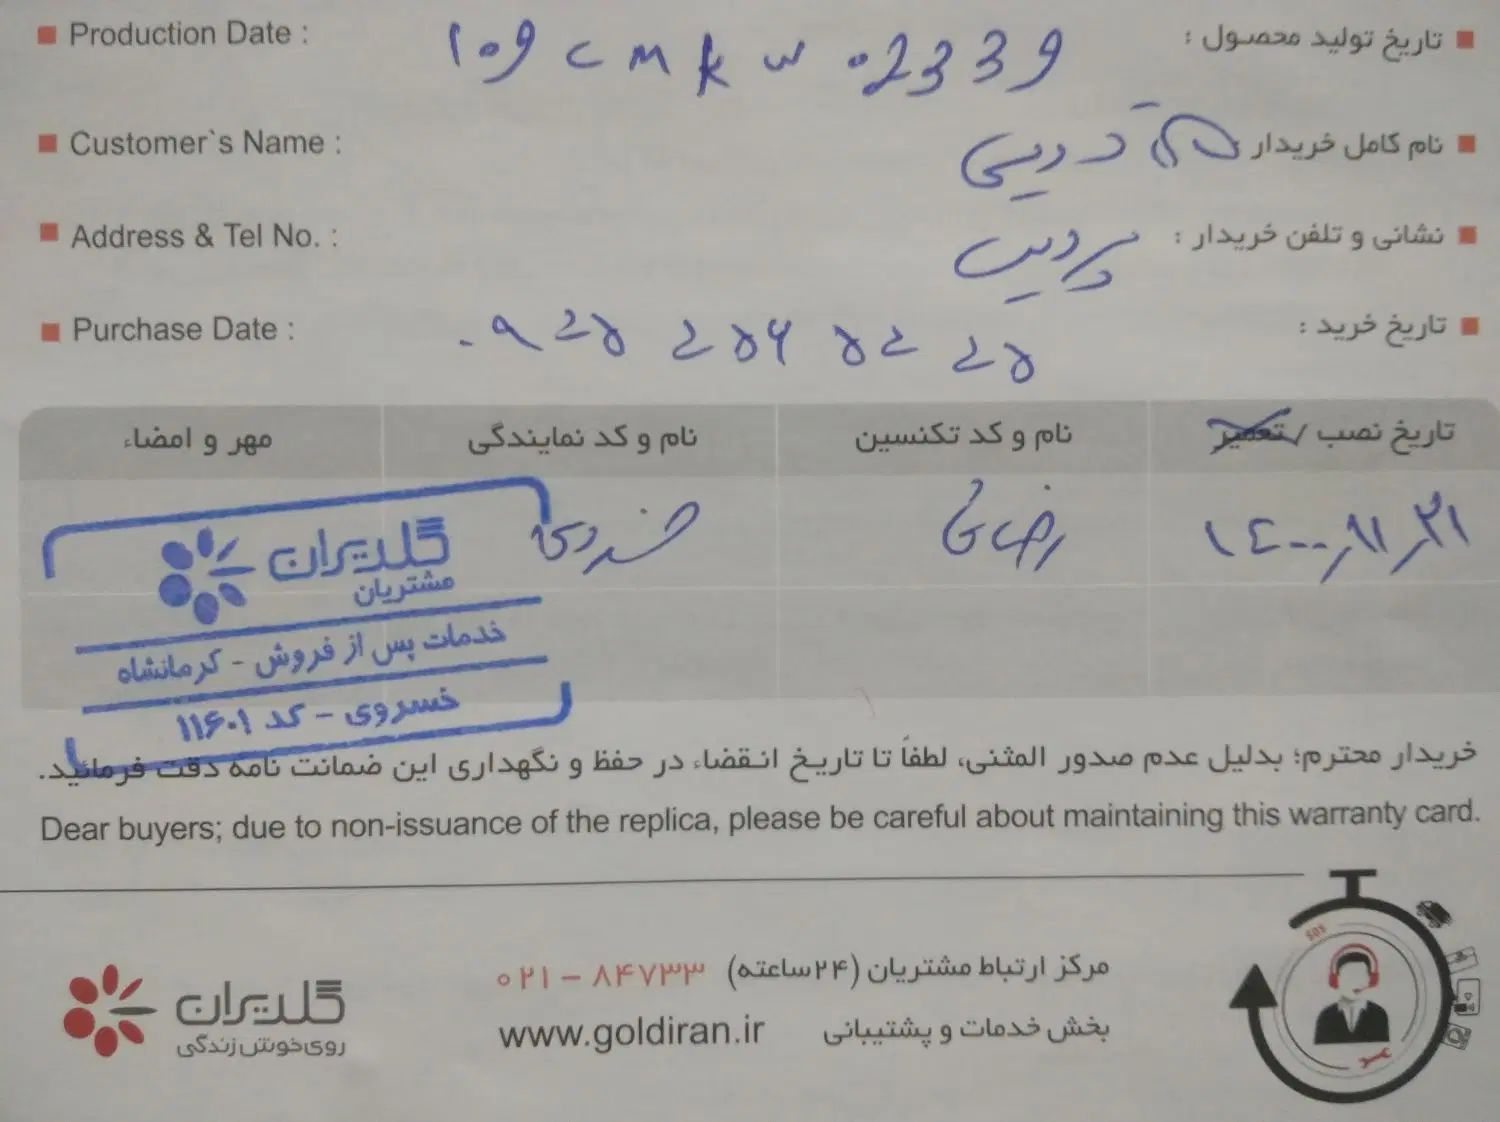 Production Date : 109CMKW02339 تاریخ تولید محصول :
Customer`s Name : نام کامل خریدار
Address & Tel No. : پردیس نشانی و تلفن خریدار :
Purchase Date : تاریخ خرید :
تاریخ نصب / تعمیر نام و کد تکنسین نام و کد نمایندگی مهر و امضاء
۱۴۰۰/۱۱/۲۱ رضایی خسروی
گلدیران
مشتریان
خدمات پس از فروش - کرمانشاه
خسروی - کد ۱۱۶۰۱
خریدار محترم؛ بدلیل عدم صدور المثنی، لطفاً تا تاریخ انقضاء در حفظ و نگهداری این ضمانت نامه دقت فرمائید.
Dear buyers; due to non-issuance of the replica, please be careful about maintaining this warranty card.
SOS
مرکز ارتباط مشتریان (۲۴ساعته) ۰۲۱ – ۸۴۷۳۳
بخش خدمات و پشتیبانی www.goldiran.ir
گلدیران
روی خوش زندگی